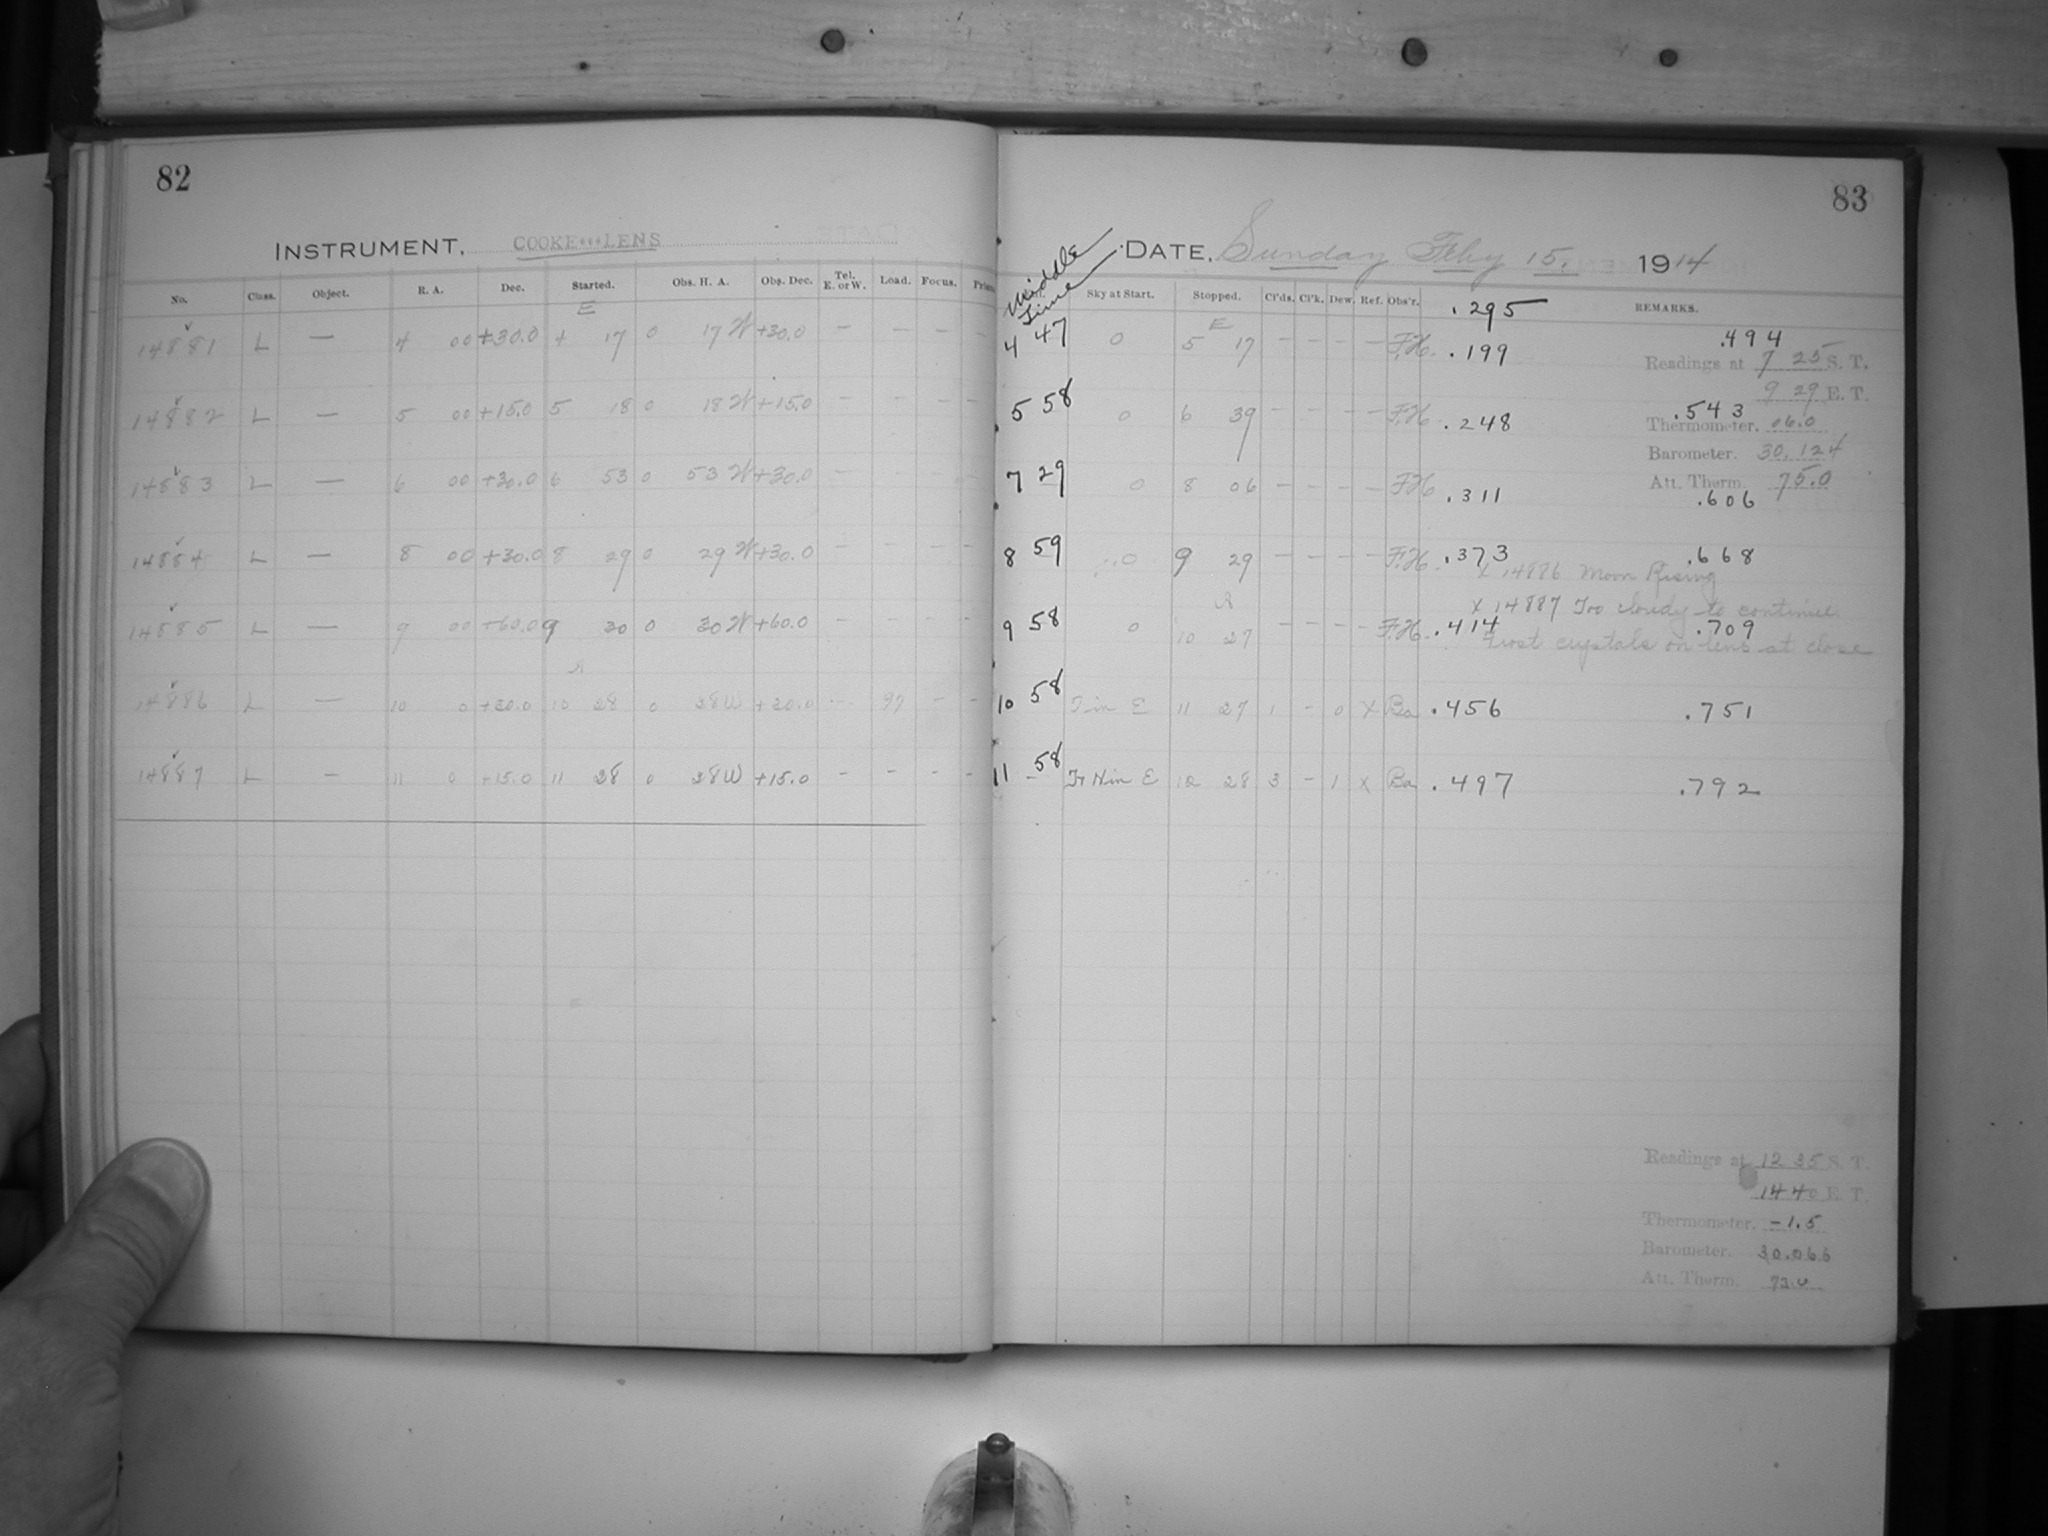 82
INSTRUMENT. COOKE LENS
No. Class. Object. R. A. Dec. Started. Obs. H. A. Obs. Dec. Tel. E. or W. Load. Focus.
E
14881 L — 4 00 +30.0 4 17 0 17 W +30.0 — — — —
14882 L — 5 00 +15.0 5 18 0 18 W +15.0 — — — —
14883 L — 6 00 +30.0 6 53 0 53 W +30.0 — — — —
14884 L — 8 00 +30.0 8 29 0 29 W +30.0 — — — —
14885 L — 9 00 +60.0 9 30 0 30 W +60.0 — — — —
14886 L — 10 0 +30.0 10 28 0 28 W +30.0 — — —
14887 L — 11 0 +15.0 11 28 0 28 W +15.0 - - - -
83
DATE. Sunday Feby 15. 1914
Middle Time Sky at Start. Stopped. Cl'ds. Cl'k. Dew. Ref. Obs'r. REMARKS.
.295
E
4 47 0 5 17 — — — — F.H. .199 .494
Readings at 7 25 S. T.
9 29 E. T.
5 58 0 6 39 — — — — F.H. .248 .543
Thermometer. 06.0
Barometer. 30.124
Att. Therm. 75.0
7 29 0 8 06 — — — — F.H. .311 .606
8 59 0 9 29 — — — — F.H. .373 .668
x 14886 Moon Rising
x 14887 Too cloudy to continue
9 58 0 10 27 — — — — F.H. .414 .709
Frost crystals on lens at close
10 58 F in E 11 27 1 - 0 x Ba .456 .751
11 58 Fr H in E 12 28 3 - 1 x Ba .497 .792
Readings at 12 35 S. T.
14 40 E. T.
Thermometer. -1.5
Barometer. 30.066
Att. Therm.